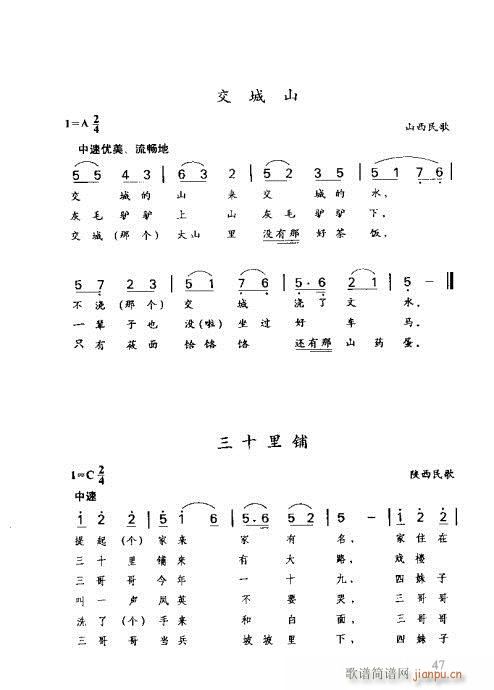 交城山
1=A 2/4
山西民歌
中速优美、流畅地
5 5 4 3 | 6 3 2 | 5 2 3 5 | 5 1 7 6 |
交 城的 山 来 交 城的 水，
灰毛 驴驴 上 山 灰毛 驴驴 下，
交城（那个）大山 里 没有那 好茶 饭，
5 7 2 3 | 5 1 7 6 | 5·6 2 1 | 5 – ‖
不 浇（那个）交 城 浇了 文 水。
一 辈 子也 没（啦）坐过 好 车 马。
只 有 莜面 饸饹 饹 还有那 山 药 蛋。
三十里铺
1=C 2/4
陕西民歌
中速
1 2 5 2 | 5 1 6 | 5·6 5 2 | 5 – | 2 2 1 2 |
提起（个）家来 家 有 名， 家住在
三十 里 铺来 有 大 路， 戏楼
三哥 哥 今年 一 十 九， 四妹子
叫一 声 凤英 不 要 哭， 三哥哥
洗了（个）手来 和 白 面， 三哥哥
三哥 哥 当兵 坡坡里 下， 四妹子
47
歌谱简谱网
jianpu.cn